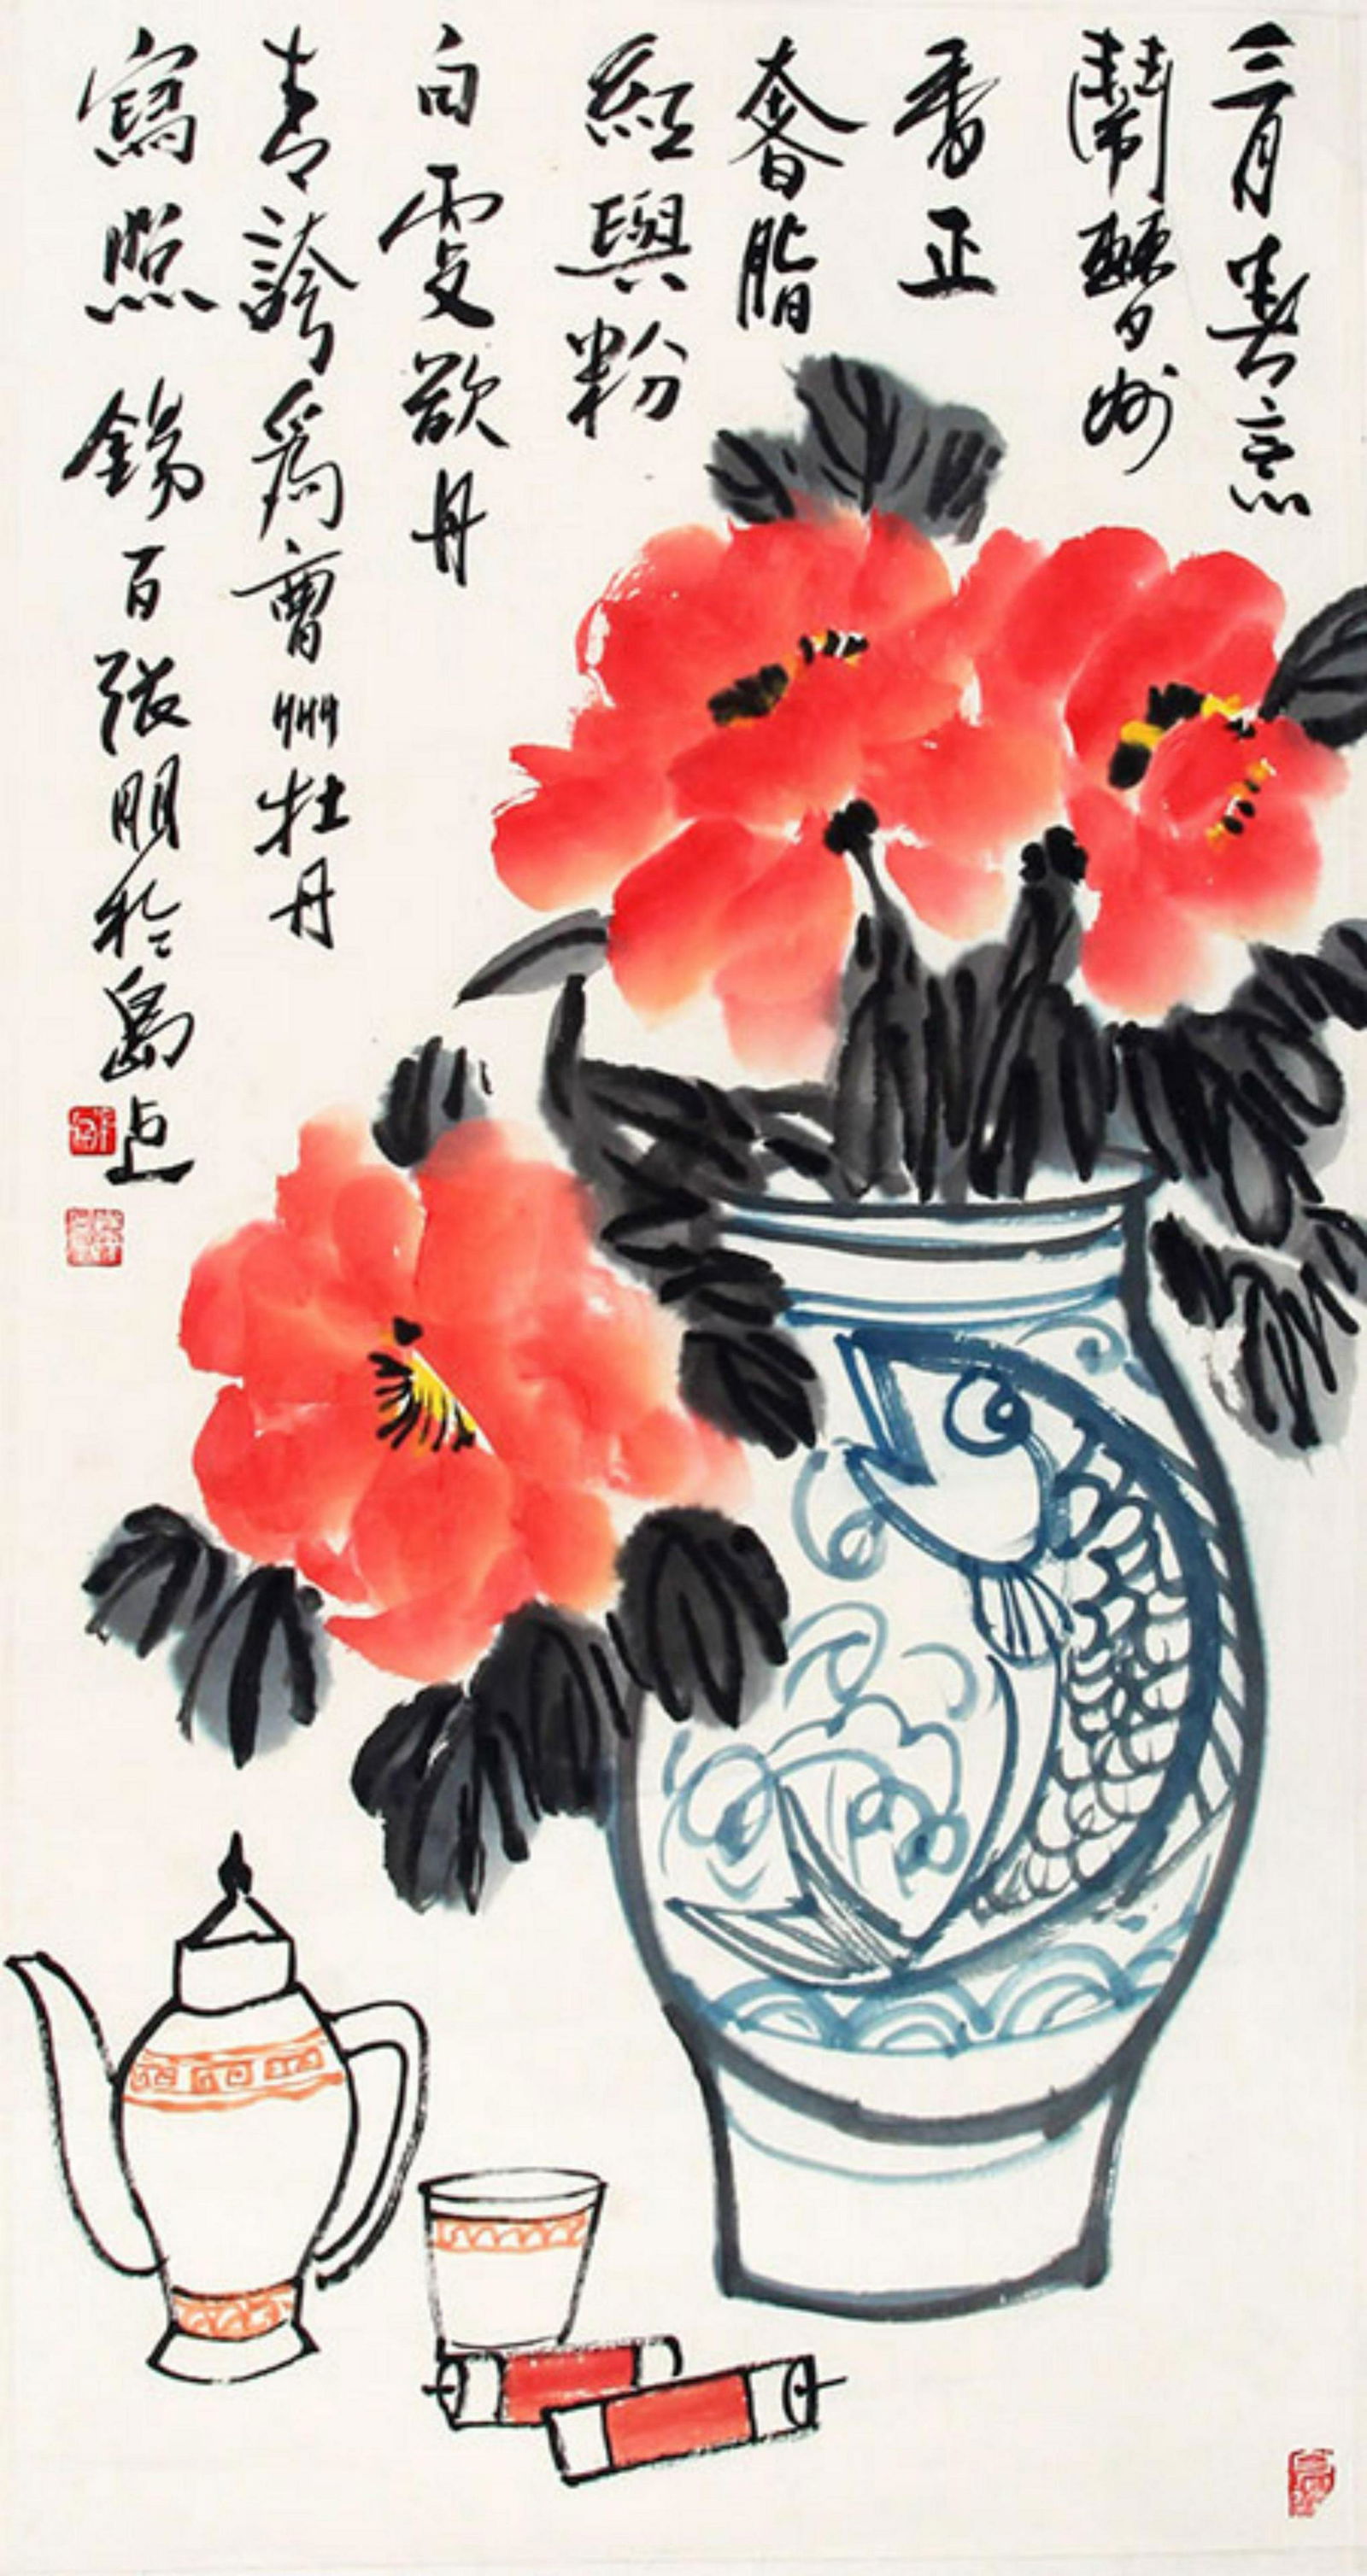 三月春意
鬧
香正
奢脂
紅與粉
白欲丹
青誇為曹州牡丹
寫照 錫百張朋於島上